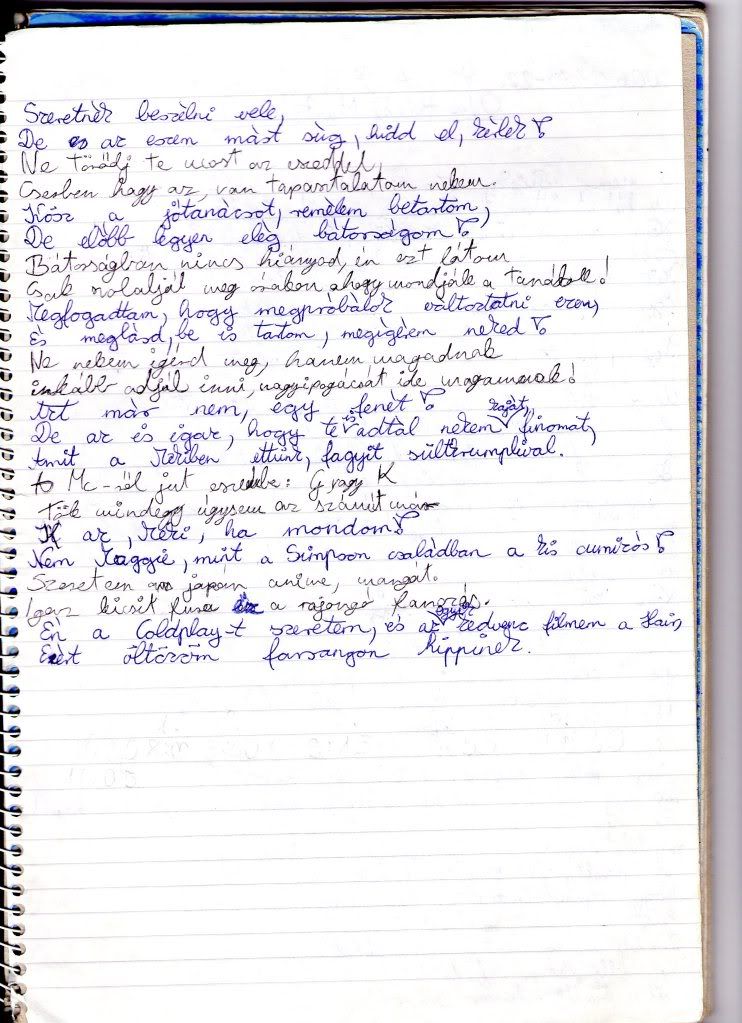 Szeretnék beszélni vele,
De az eszem mást súg, hidd el, kérlek!
Ne törődj te most az eszeddel,
Cserben hagy az, van tapasztalatom nekem.
Kösz a jótanácsot, remélem betartom,
De előbb legyen elég bátorságom!
Bátorságban nincs hiányod, én ezt látom
Csak szólaljál meg órákon ahogy mondják a tanárok!
Megfogadtam, hogy megpróbálok változtatni ezen,
És meglásd, be is tartom, megígérem neked!
Ne nekem ígérd meg, hanem magadnak
inkább adjál inni, nagyipogácsát ide magamnak!
Azt már nem, egy fenét!
De az is igaz, hogy te is adtál nekem kaját, finomat,
Amit a Mekiben ettünk, fagyit sültkrumplival.
Mc-ről jut eszembe: G vagy K
Tök mindegy úgysem az számít már
K az, Keki, ha mondom!
Nem Maggie, mint a Simpson családban a kis cumizós!
Szeretem japán anime, mangát.
Igaz kicsit fura a rajongó
Én a Coldplay-t szeretem, és az egyik kedvenc filmem a Hair,
Ezért öltözöm farsangon hippinek.